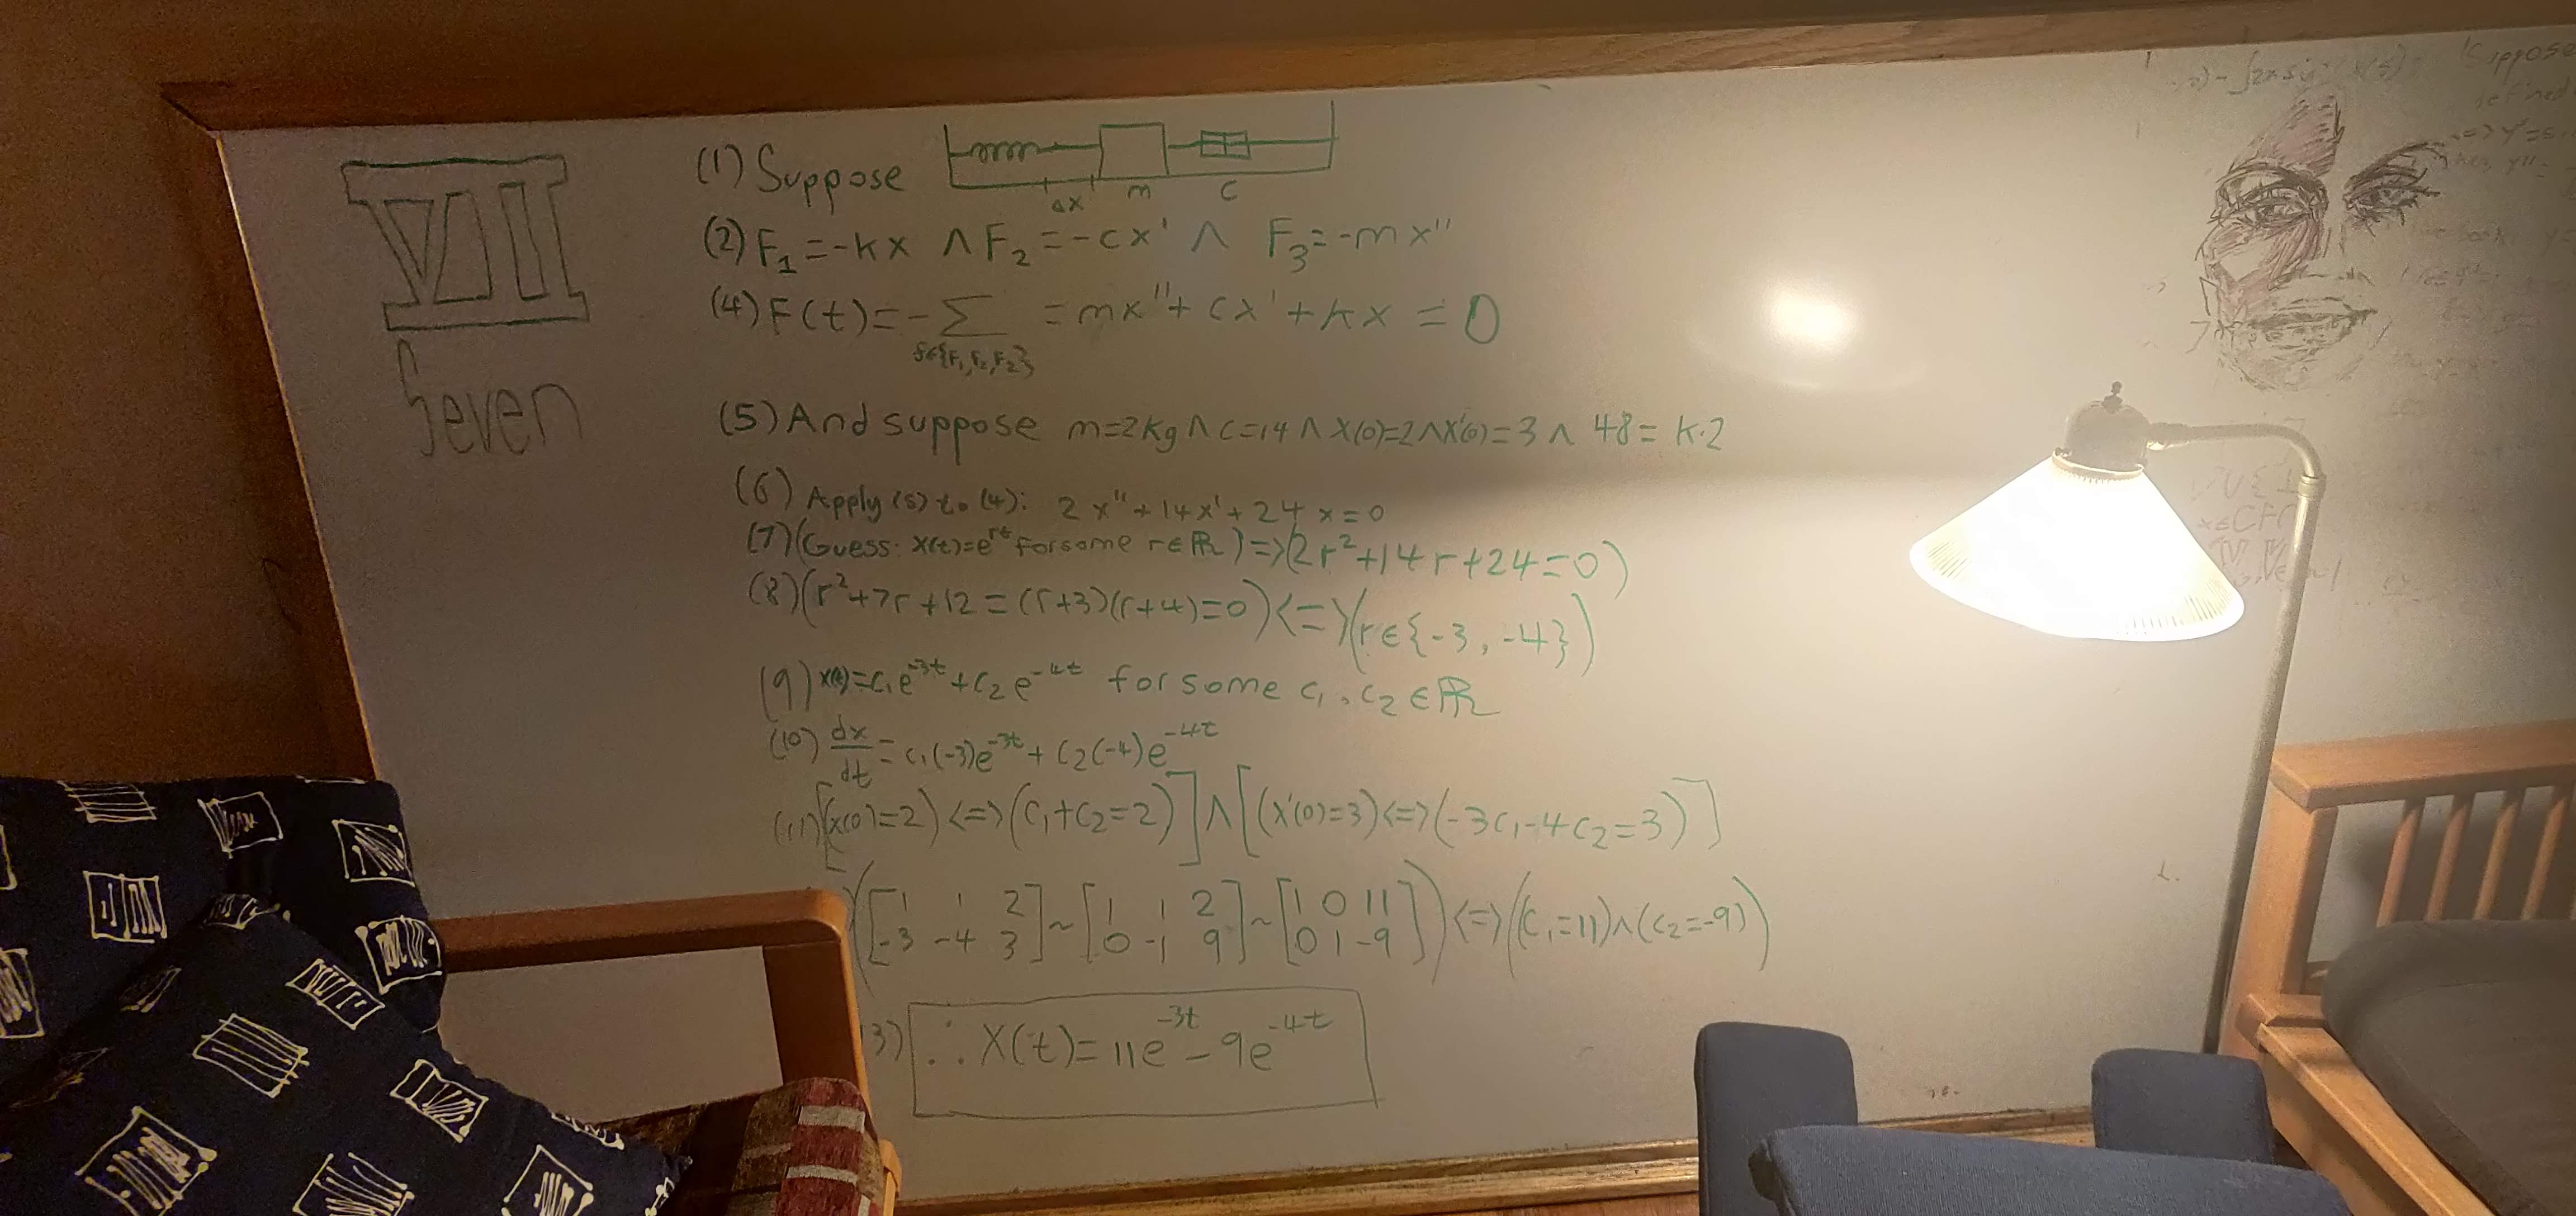 VII
Seven
(1) Suppose
Δx m C
(2) F₁=-kx ∧ F₂=-cx' ∧ F₃=-mx"
(4) F(t)=-∑ =mx"+cx'+kx=0
f∈{F₁,F₂,F₂}
(5) And suppose m=2kg∧c=14∧X(0)=2∧X'(0)=3∧ 48=k·2
(6) Apply (5) to (4): 2x"+14x'+24x=0
(7)(Guess: X(t)=e^rt for some r∈ℝ)=>(2r²+14r+24=0)
(8)(r²+7r+12=(r+3)(r+4)=0)<=>(r∈{-3,-4})
(9) x(t)=c₁e^-3t+c₂e^-4t for some c₁,c₂∈ℝ
(10) dx/dt=c₁(-3)e^-3t+c₂(-4)e^-4t
(11)[(x(0)=2)<=>(c₁+c₂=2)]∧[(x'(0)=3)<=>(-3c₁-4c₂=3)]
([1 1 2]~[1 1 2]~[1 0 11])<=>(c₁=11)∧(c₂=-9))
[-3 -4 3] [0 -1 9] [0 1 -9]
3) ∴ X(t)=11e^-3t-9e^-4t
Suppose
defined